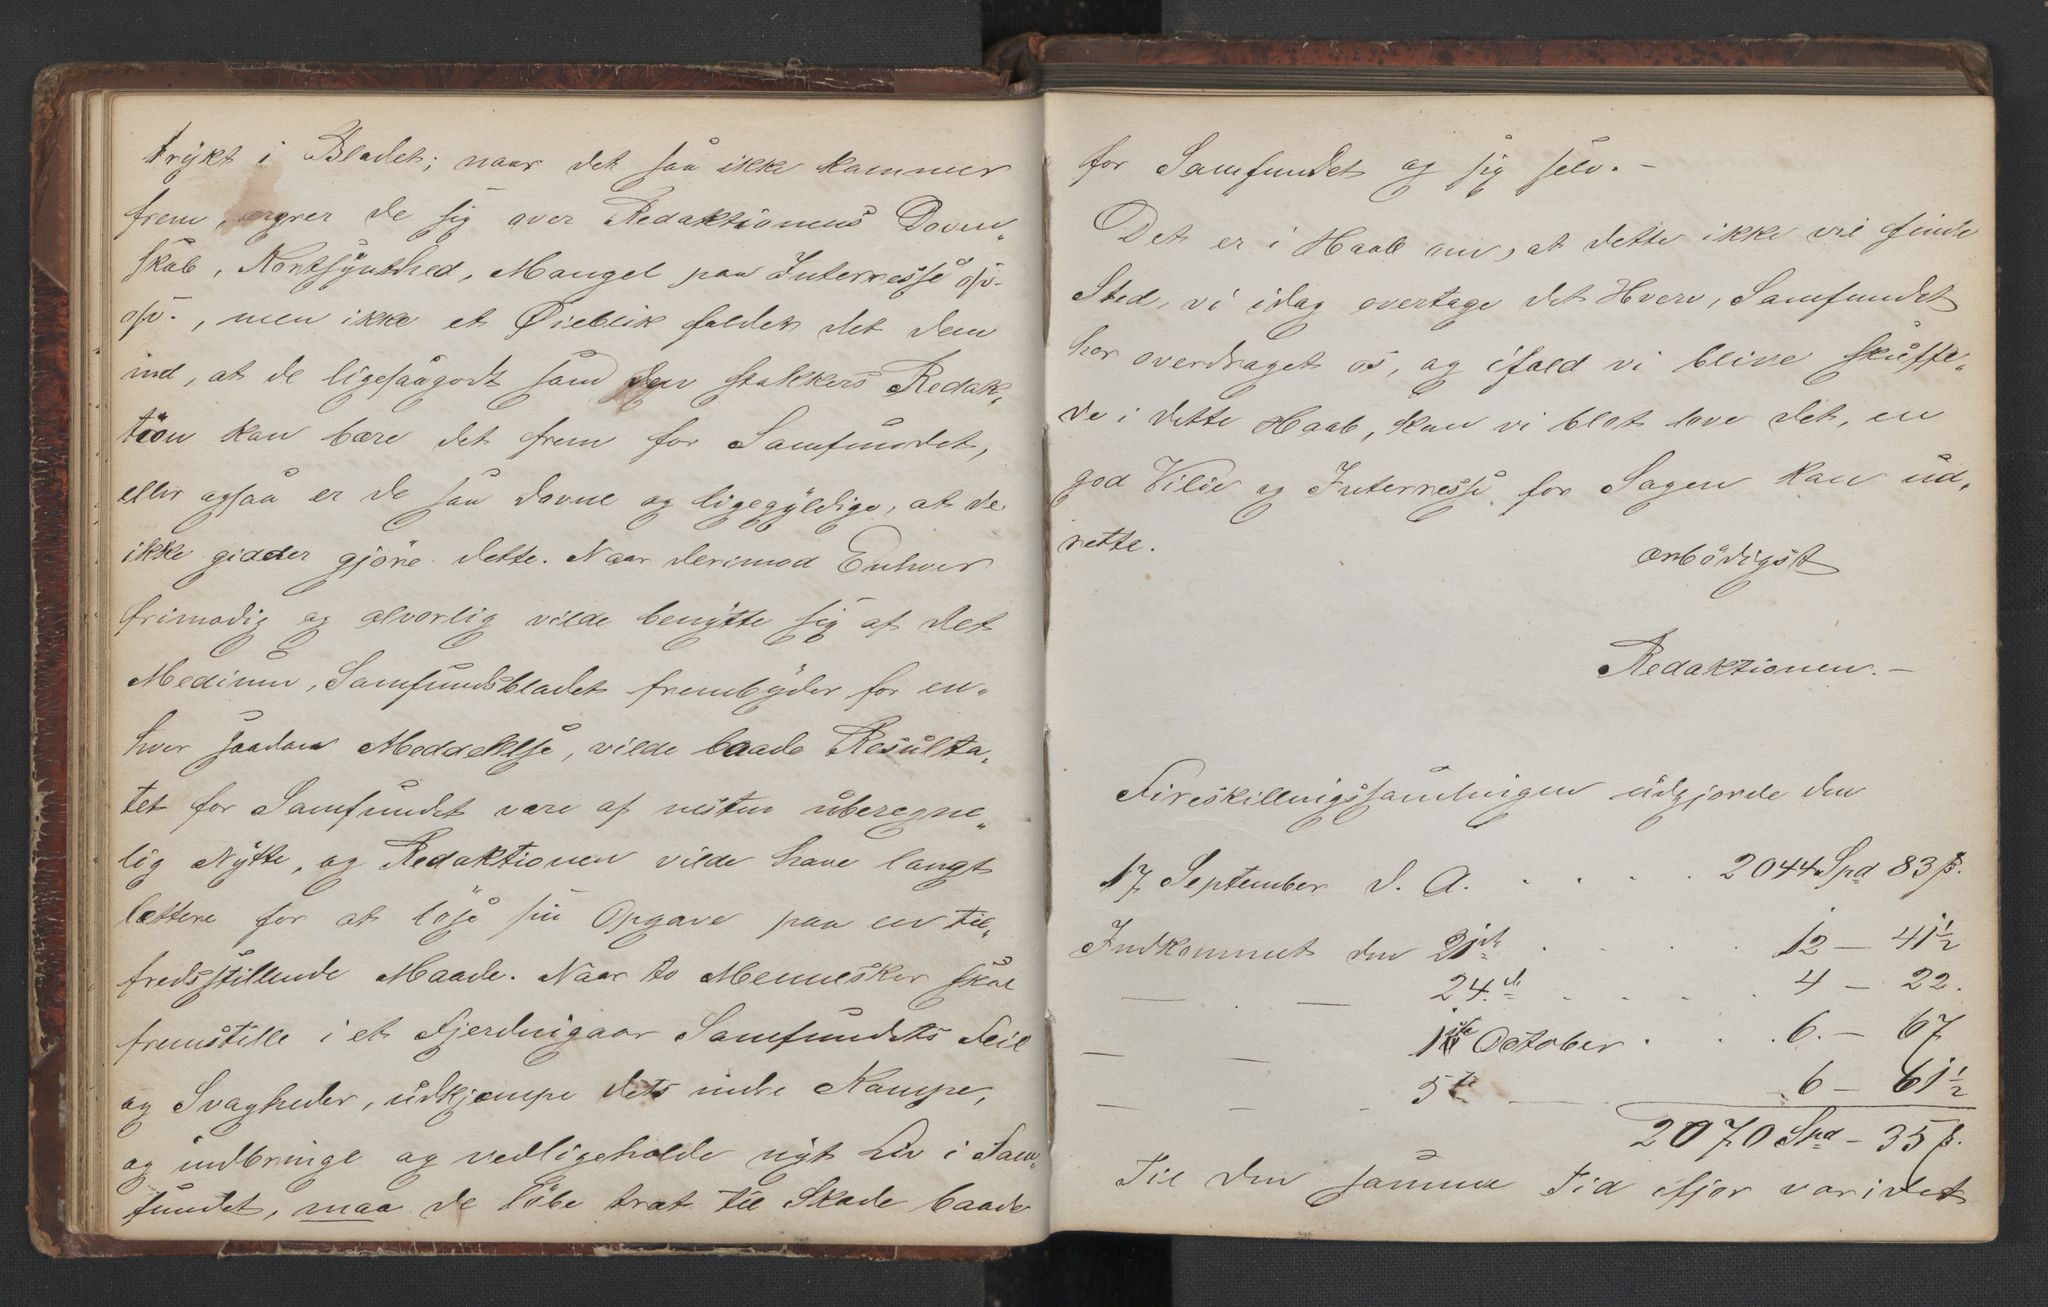 trykt i Bladet; naar det saa ikke kommer
frem, ærgrer de sig over Redaktionens Doven„
skab, Kortsynthed, Mangel paa Internesse osv.
osv., men ikke et Øieblik falder det dem
ind, at de ligesaagodt som den stakkers Redak„
tion kan bære det frem for Samfundet,
eller ogsaa er de saa dovne og ligegyldige, at de
ikke gidder gjöre dette. Naar derimod Enhver
frimodig og alvorlig vilde benytte sig af det
Medium, Samfundsbladet frembyder for en„
hver saadan Meddelelse, vilde baade Resulta„
tet for Samfundet være af næsten uberegne„
lig Nytte, og Redaktionen vilde have langt
lættere for at löse sin Opgave paa en til„
fredsstillende Maade. Naar to Mennesker skal
fremstille i et Fjerdingaar Samfundets Feil
og Svagheder, udkjæmpe dets indre Kampe,
og indbringe og vedligeholde nyt Liv i Sam„
fundet, maa de löbe træt til Skade baade
for Samfundet og sig selv. –
Det er i Haab om, at dette ikke vil finde
Sted, vi idag overtage det Hverv, Samfundet
har overdraget os, og ifald vi blive skuffe„
de i dette Haab, kan vi blot love det, en
god Vilie og Internesse for Sagen kan ud„
rette.
ærbödigst
Redaktionen. –
Fireskillingssamlingen udgjorde den
17 September d. A. . . . . 2044 Spd 83 ß.
Indkommet den 21de . . . . 12 – 41½
— . — 24.de . . . . 4 – 22.
— — 1ste October . . . 6. – 67
— — . 5te — 6 – 61½
2070 Spd – 35 ß.
Til den samme Tid ifjor var idet